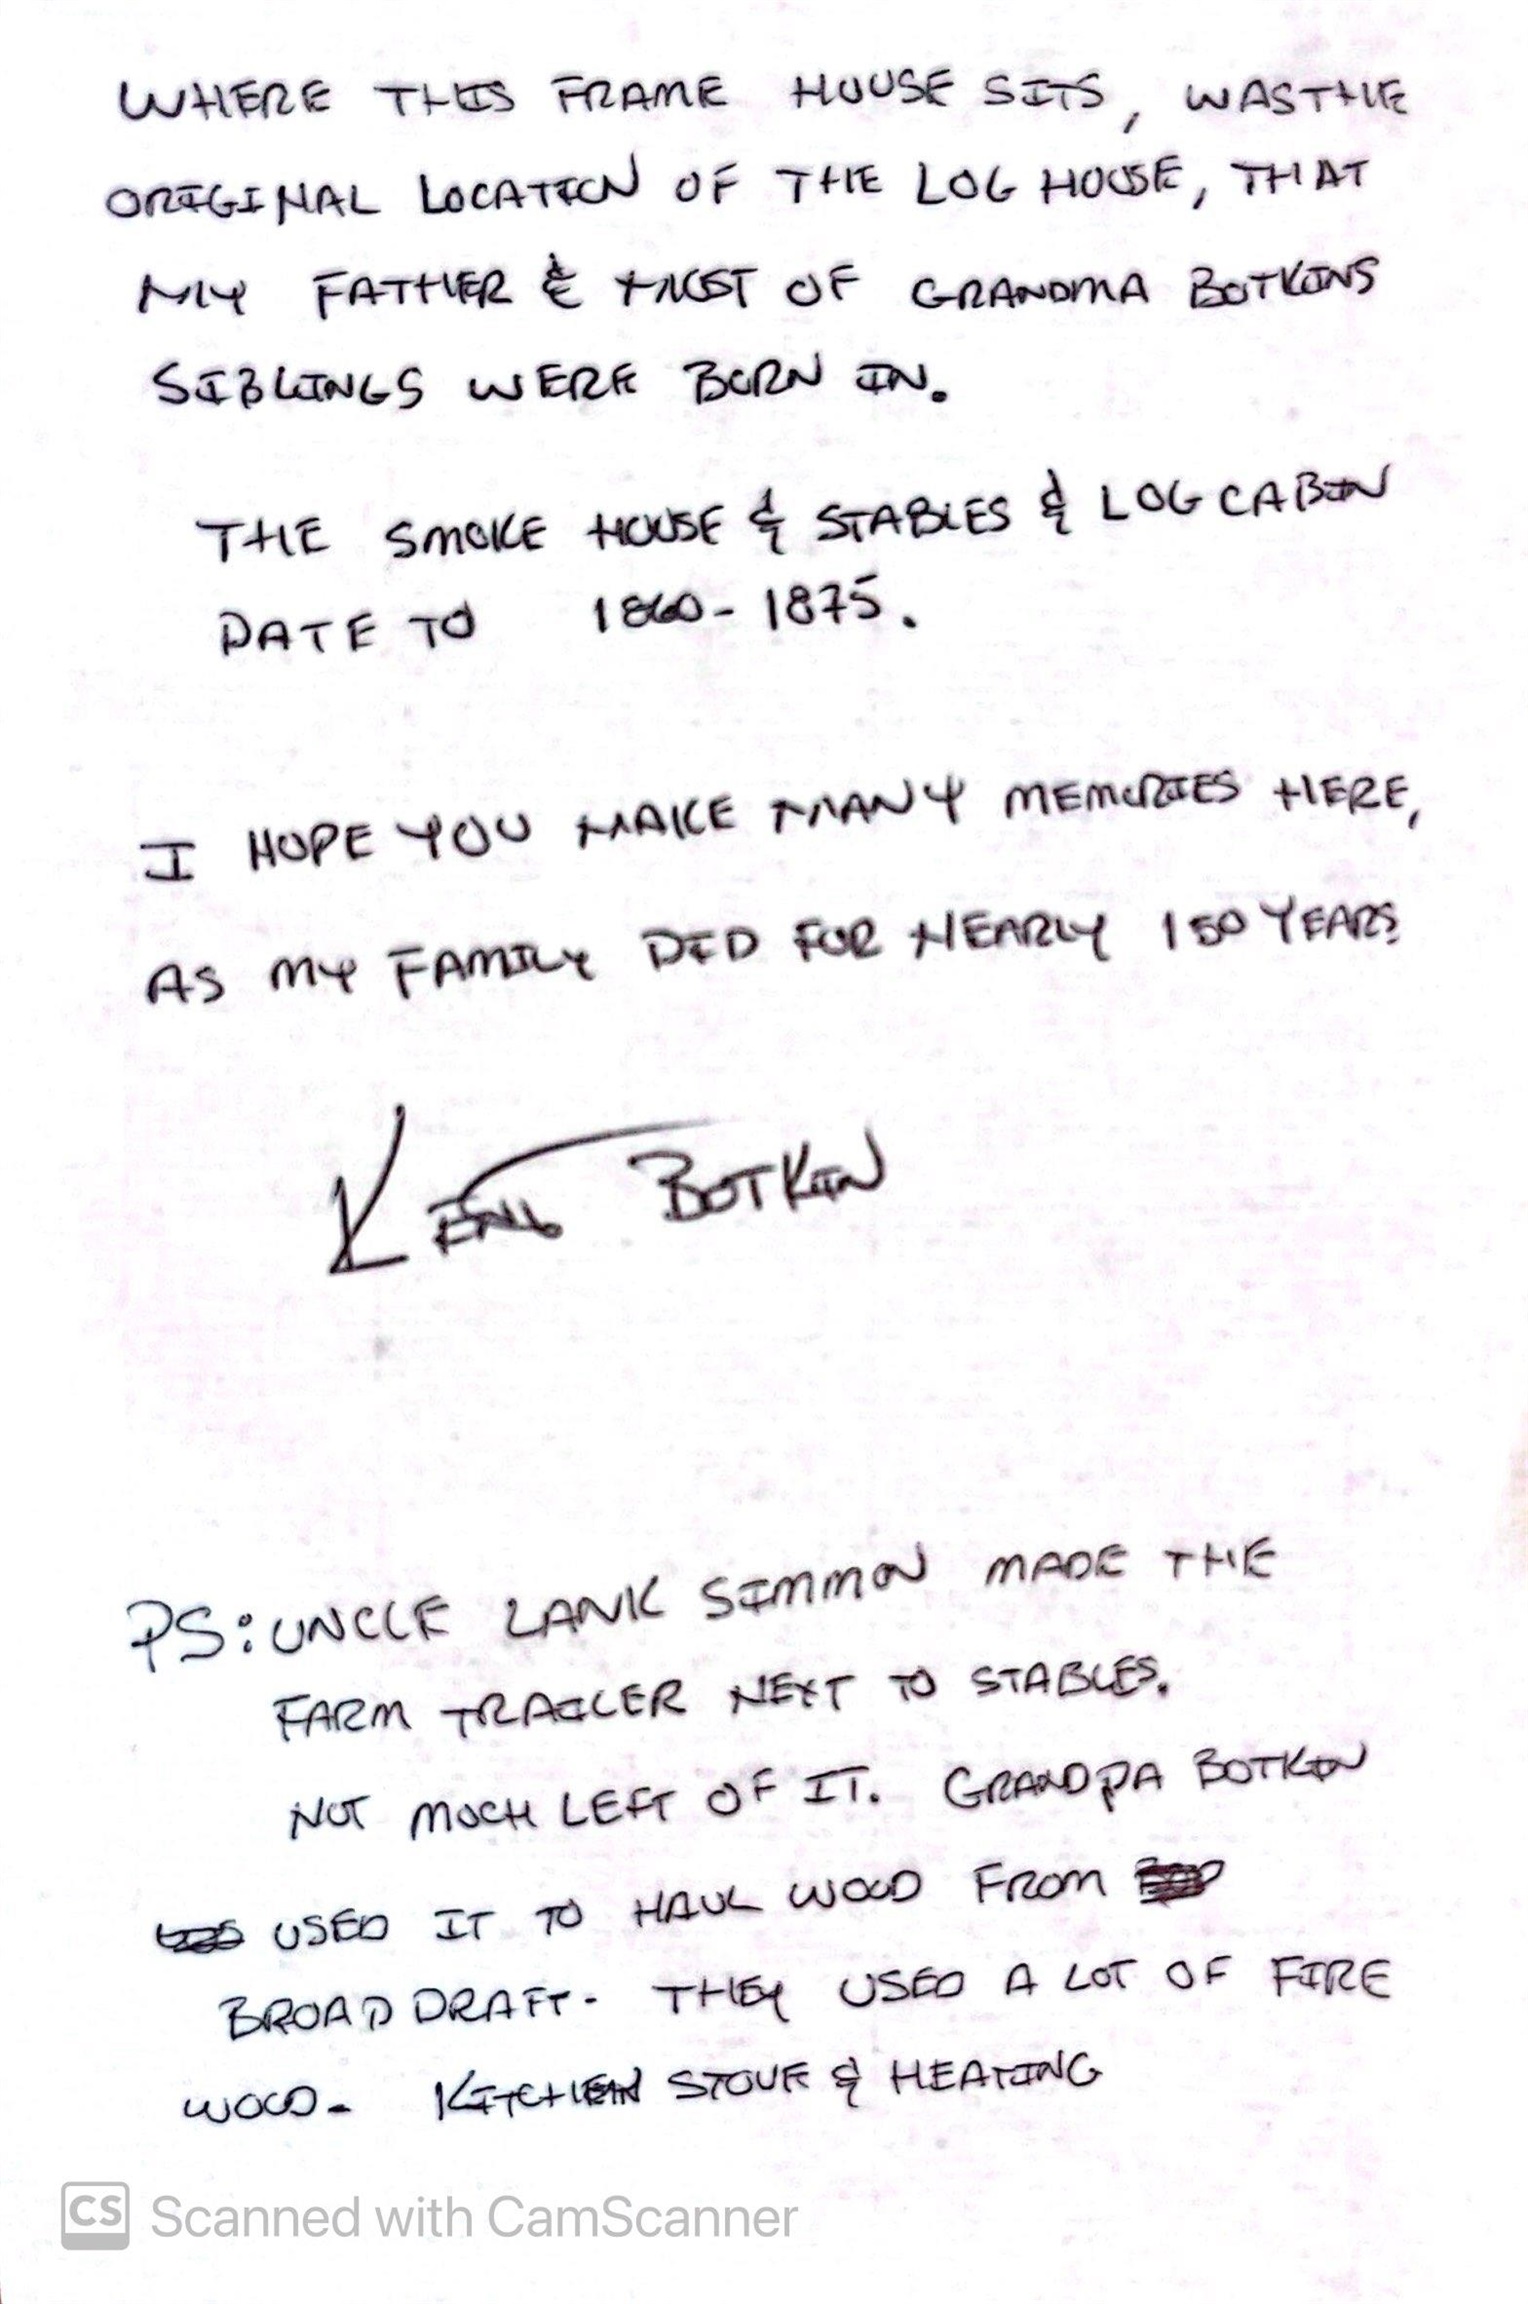 WHERE THIS FRAME HOUSE SITS, WAS THE
ORIGINAL LOCATION OF THE LOG HOUSE, THAT
MY FATHER & MOST OF GRANDMA BOTKINS
SIBLINGS WERE BORN IN.
THE SMOKE HOUSE & STABLES & LOG CABIN
DATE TO 1860-1875.
I HOPE YOU MAKE MANY MEMORIES HERE,
AS MY FAMILY DID FOR NEARLY 150 YEARS
BOTKIN
PS: UNCLE LANK SIMMON MADE THE
FARM TRAILER NEXT TO STABLES.
NOT MUCH LEFT OF IT. GRANDPA BOTKIN
USED IT TO HAUL WOOD FROM
BROAD DRAFT. THEY USED A LOT OF FIRE
WOOD. KITCHEN STOVE & HEATING
CS Scanned with CamScanner